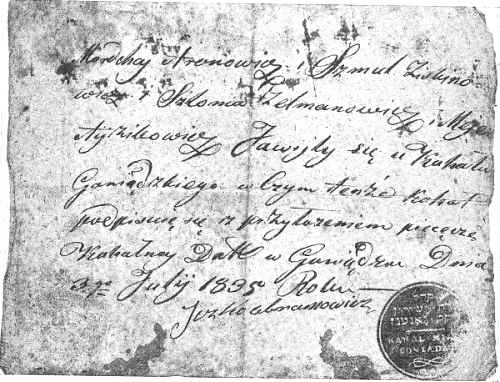 Mordchaj Aronowicz i Szmul Zuskino-
wicz i Szloma Zelmanowicz i Meje
Ayzikowicz Jawiły się u Kahału
Goniądzkiego w Czym tenże Kahał
podpisuje się z przyłożeniem pieczęci
Kahalnej Datt w Goniądzu Dnia
3go Julij 1835 Roku
Jczko abramowicz
KAHAŁ
GONIADZ